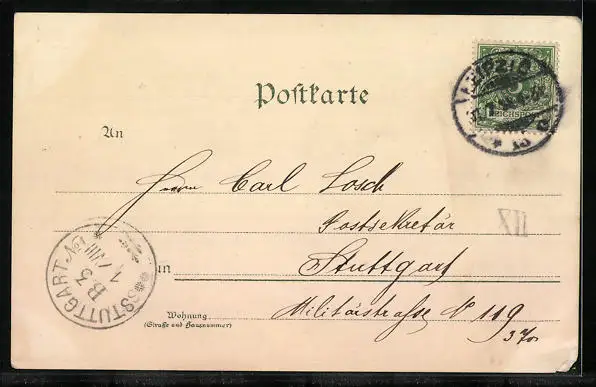 Postkarte
LEIPZIG
5
REICHSPOST
* 13 *
An
Herrn Carl Losch
Postsekretär
XII
in Stuttgart
STUTTGART No 1
B 3
1/VIII
Wohnung
(Straße und Hausnummer)
Militärstraße No 119